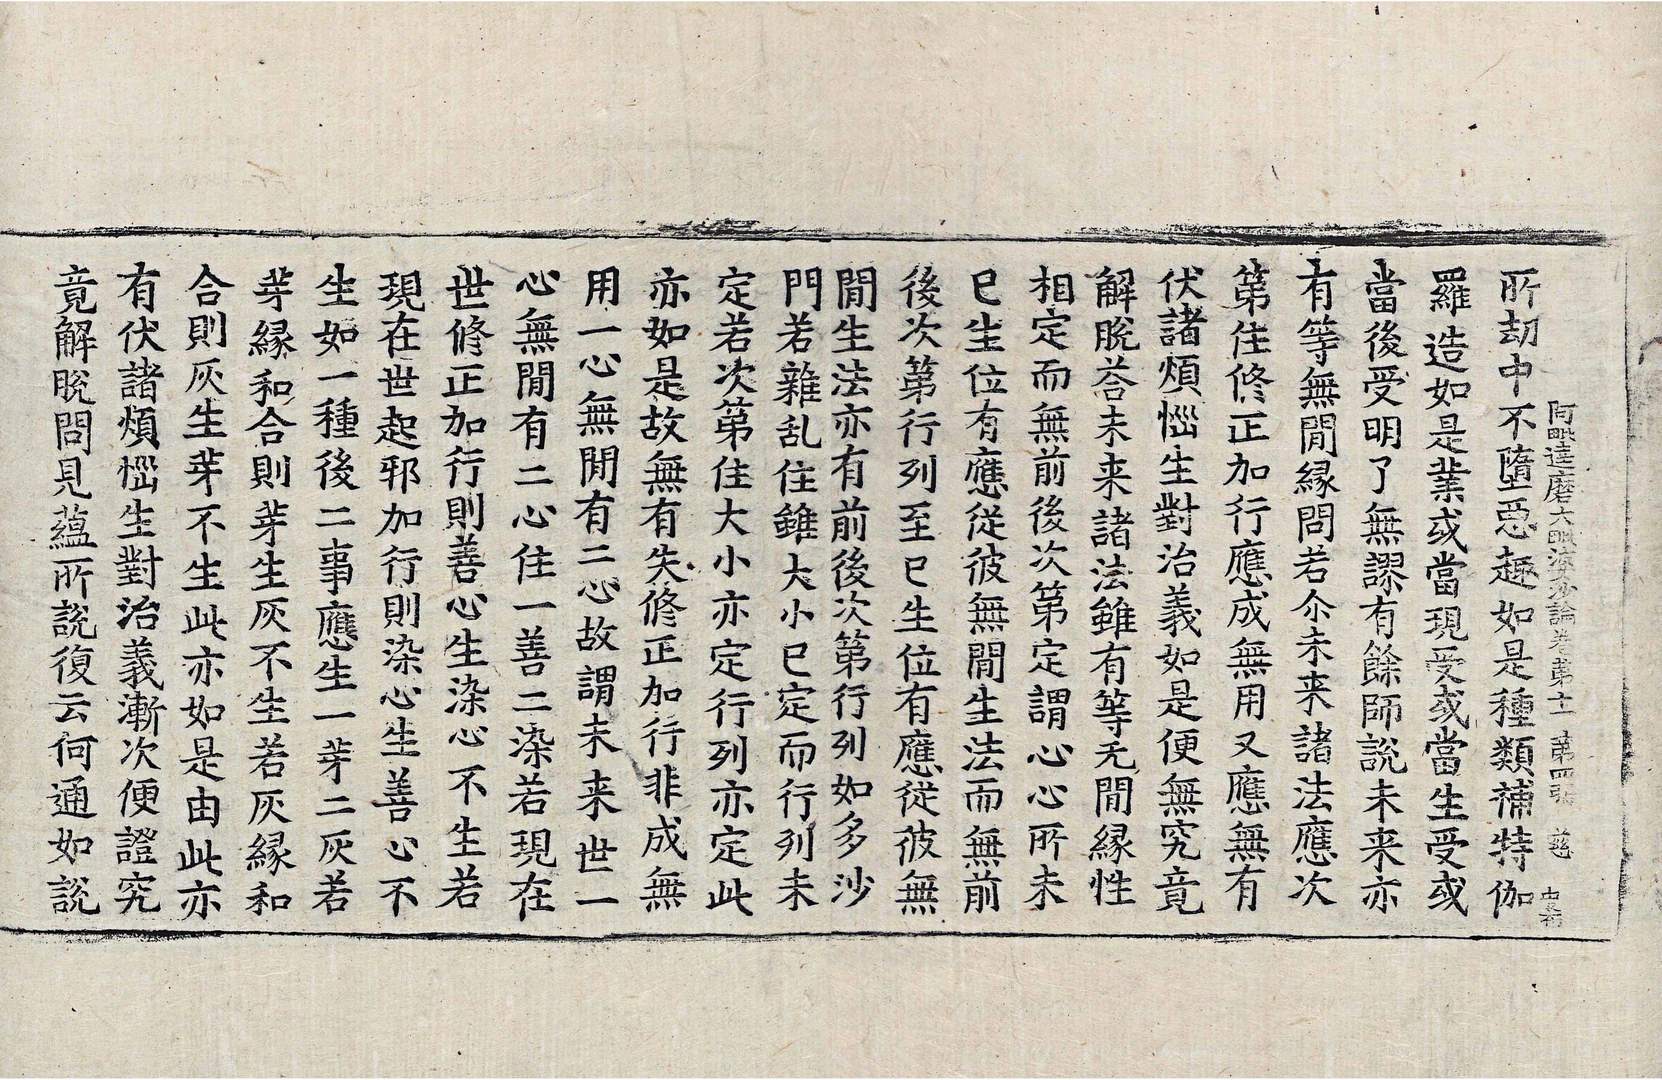 阿毗達磨大毗婆沙論卷第十一 第四張 慈
所劫中不墮惡趣如是種類補特伽
羅造如是業或當現受或當生受或
當後受明了無謬有餘師說未来亦
有等無閒緣問若尒未来諸法應次
第住修正加行應成無用又應無有
伏諸煩惱生對治義如是便無究竟
解脫荅未来諸法雖有等无閒緣性
相定而無前後次第定謂心心所未
已生位有應從彼無閒生法而無前
後次第行列至已生位有應從彼無
閒生法亦有前後次第行列如多沙
門若雜乱住雖大小已定而行列未
定若次第住大小亦定行列亦定此
亦如是故無有失修正加行非成無
用一心無閒有二心故謂未来世一
心無閒有二心住一善二染若現在
世修正加行則善心生染心不生若
現在世起邪加行則染心生善心不
生如一種後二事應生一芽二灰若
芽緣和合則芽生灰不生若灰緣和
合則灰生芽不生此亦如是由此亦
有伏諸煩惱生對治義漸次便證究
竟解脫問見蘊所說復云何通如說